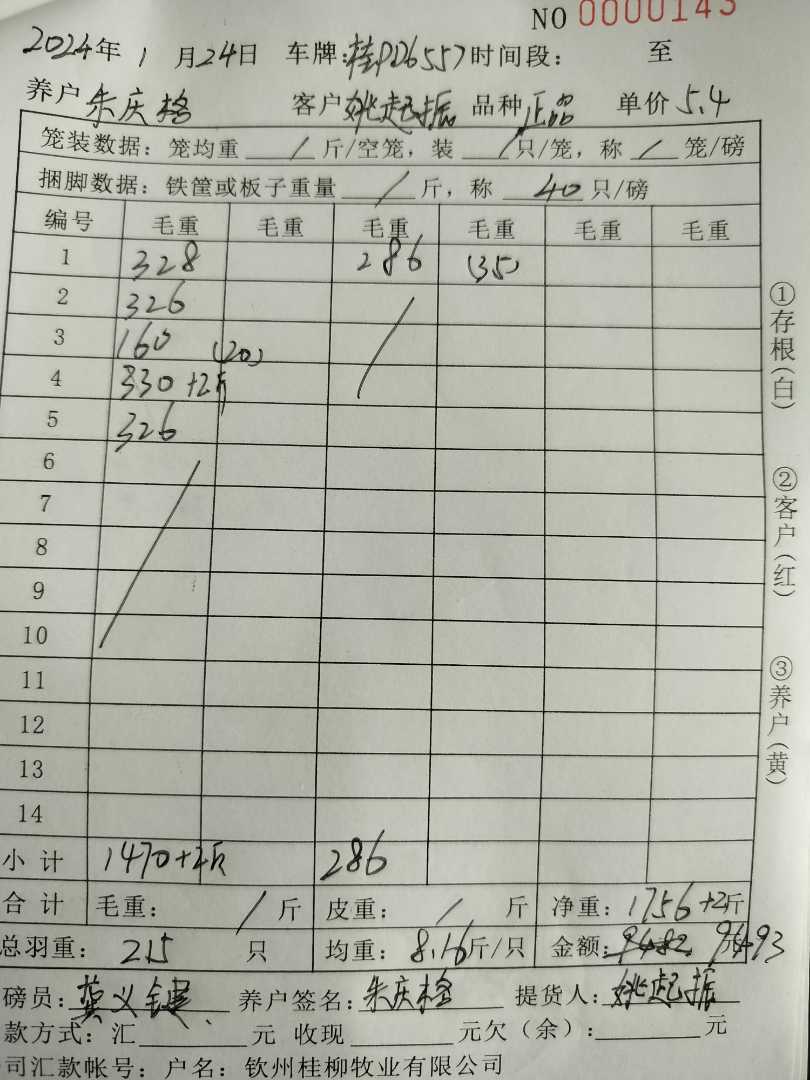 NO 0000143
2024年 1 月24日 车牌:桂PD6557时间段: 至
养户 朱庆格 客户 姚起振 品种 正品 单价 5.4
笼装数据:笼均重 / 斤/空笼,装 / 只/笼,称 / 笼/磅
捆脚数据:铁筐或板子重量 / 斤,称 40 只/磅
编号 毛重 毛重 毛重 毛重 毛重 毛重
1 328 286 (35)
2 326 /
3 160 (20)
4 330+2斤
5 326
6 /
7
8
9
10
11
12
13
14
小计 1470+2斤 286
合计 毛重: / 斤 皮重: / 斤 净重:1756+2斤
总羽重: 215 只 均重:8.16斤/只 金额:9482 元 9493
磅员:莫义健 养户签名:朱庆格 提货人:姚起振
款方式:汇 元 收现 元欠(余): 元
司汇款帐号:户名:钦州桂柳牧业有限公司
①存根(白)
②客户(红)
③养户(黄)